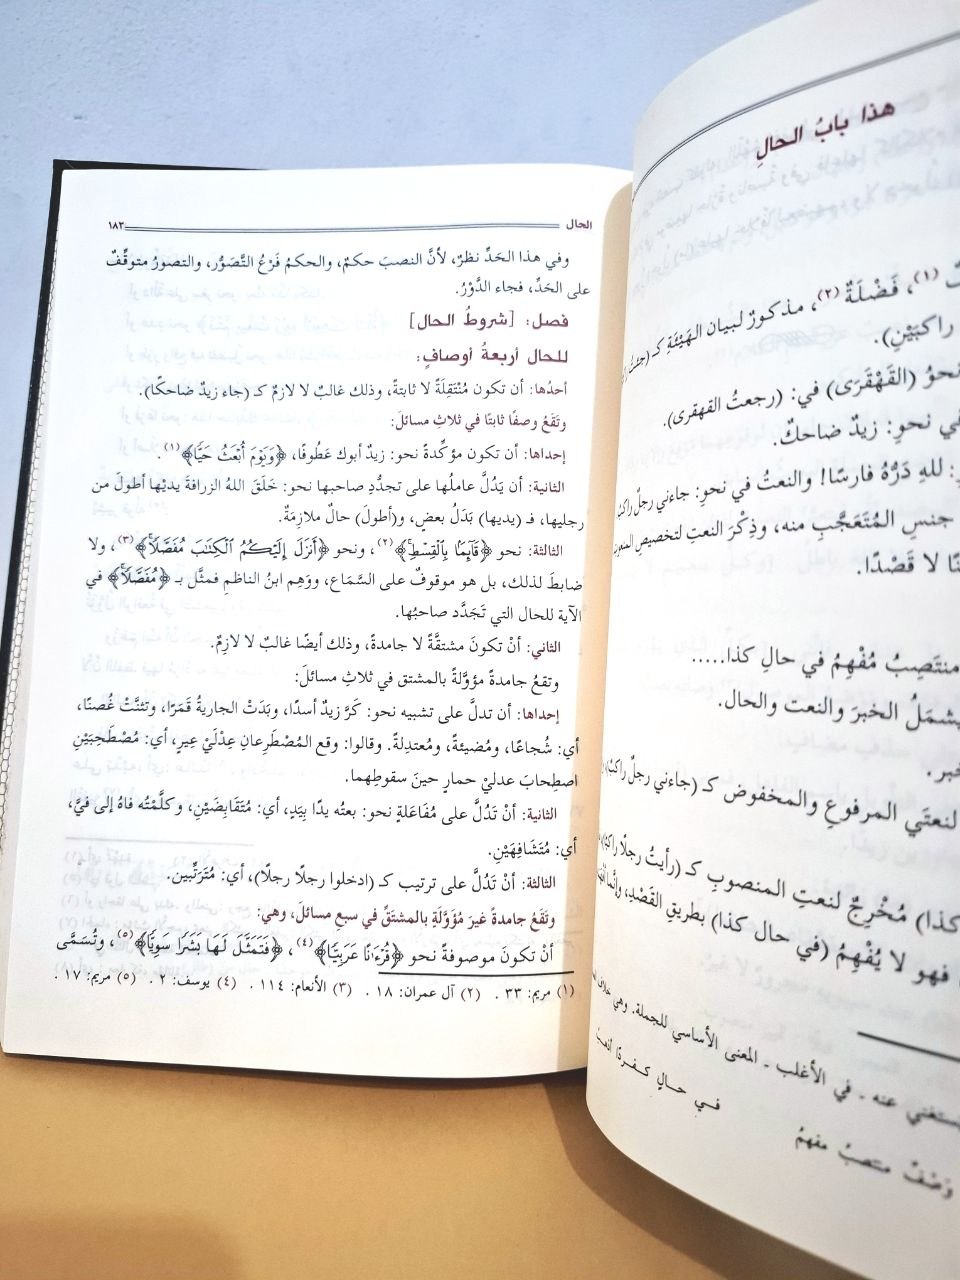 هذا بابُ الحالِ
(١)، فَضْلَةٌ (٢)، مذكورٌ لبيان الهَيْئَةِ كـ (جئتُ
راكبَيْنِ).
نحوُ (القَهْقَرَى) في: (رجعتُ القهقرى).
في نحوِ: زيدٌ ضاحكٌ.
: للهِ دَرُّهُ فارسًا! والنعتُ في نحوِ: جاءني رجلٌ راكبٌ
جنسِ المُتَعَجَّبِ منه، وذِكْرَ النعتِ لتخصيصِ المنعوتِ
لا قَصْدًا.
منتَصِبُ مُفْهِمُ في حالِ كذا.....
يشمَلُ الخبرَ والنعتَ والحال.
خبر.
لنعتَي المرفوعِ والمخفوضِ كـ (جاءني رجلٌ راكبٌ)
كذا) مُخْرِجٌ لنعتِ المنصوبِ كـ (رأيتُ رجلًا راكبًا)
فهو لا يُفْهِمُ (في حال كذا) بطريقِ القَصْدِ، وإنما
يستغني عنه ـ في الأغلب ـ المعنى الأساسي للجملة. وهي خلاف
وَصْفٌ منتصبٌ مفهمُ في حالِ كـفـردًا أذهبُ
الحال ١٨٣
وفي هذا الحَدِّ نظرٌ، لأنَّ النصبَ حكمٌ، والحكمُ فَرْعُ التَّصَوُّرِ، والتصورُ متوقِّفٌ
على الحَدِّ، فجاء الدَّوْرُ.
فصل: [شروطُ الحال]
للحال أربعةُ أوصافٍ:
أحدُها: أن تكون مُنْتَقِلَةً لا ثابتةً، وذلك غالبٌ لا لازمٌ كـ (جاء زيدٌ ضاحكًا).
وتَقَعُ وصفًا ثابتًا في ثلاثِ مسائلَ:
إحداها: أن تكون مؤكِّدةً نحو: زيدٌ أبوك عَطُوفًا، ﴿وَيَوْمَ أُبْعَثُ حَيًّا﴾(١).
الثانية: أن يَدُلَّ عاملُها على تجدُّدِ صاحبها نحو: خَلَقَ اللهُ الزرافةَ يديْها أطولَ من
رجليها، فـ (يديها) بَدَلُ بعضٍ، و(أطولَ) حالٌ ملازِمَةٌ.
الثالثة: نحو ﴿قَآئِمًا بِٱلْقِسْطِ﴾(٢)، ونحو ﴿أَنزَلَ إِلَيْكُمُ ٱلْكِتَٰبَ مُفَصَّلًا﴾(٣)، ولا
ضابطَ لذلك، بل هو موقوفٌ على السَّمَاعِ، ووَهِم ابنُ الناظمِ فمثَّل بـ ﴿مُفَصَّلًا﴾ في
الآية للحال التي تَجَدَّد صاحبُها.
الثاني: أنْ تكونَ مشتقَّةً لا جامدةً، وذلك أيضًا غالبٌ لا لازمٌ.
وتقعُ جامدةً مؤوَّلةً بالمشتق في ثلاثِ مسائلَ:
إحداها: أن تدلَّ على تشبيه نحو: كَرَّ زيدٌ أسدًا، وبَدَتْ الجاريةُ قَمَرًا، وتثنَّتْ غُصنًا،
أي: شُجاعًا، ومُضيئةً، ومُعتدِلةً. وقالوا: وقع المُصْطَرِعانِ عِدْلَيْ عِيرٍ، أي: مُصْطَحِبَيْنِ
اصطِحابَ عدليْ حمارٍ حينَ سقوطِهما.
الثانية: أنْ تَدُلَّ على مُفَاعَلةٍ نحو: بعتُه يدًا بِيَدٍ، أي: مُتَقَابِضَيْنِ، وكلَّمْتُه فاهُ إلى فيَّ،
أي: مُتَشَافِهَيْنِ.
الثالثة: أنْ تَدُلَّ على ترتيب كـ (ادخلوا رجلًا رجلًا)، أي: مُتَرَتِّبين.
وتَقَعُ جامدةً غيرَ مُؤَوَّلةٍ بالمشتَقِّ في سبعِ مسائلَ، وهي:
أنْ تكونَ موصوفةً نحو ﴿قُرْءَٰنًا عَرَبِيًّا﴾(٤)، ﴿فَتَمَثَّلَ لَهَا بَشَرًا سَوِيًّا﴾(٥)، وتُسَمَّى
(١) مريم: ٣٣. (٢) آل عمران: ١٨. (٣) الأنعام: ١١٤. (٤) يوسف: ٢. (٥) مريم: ١٧.